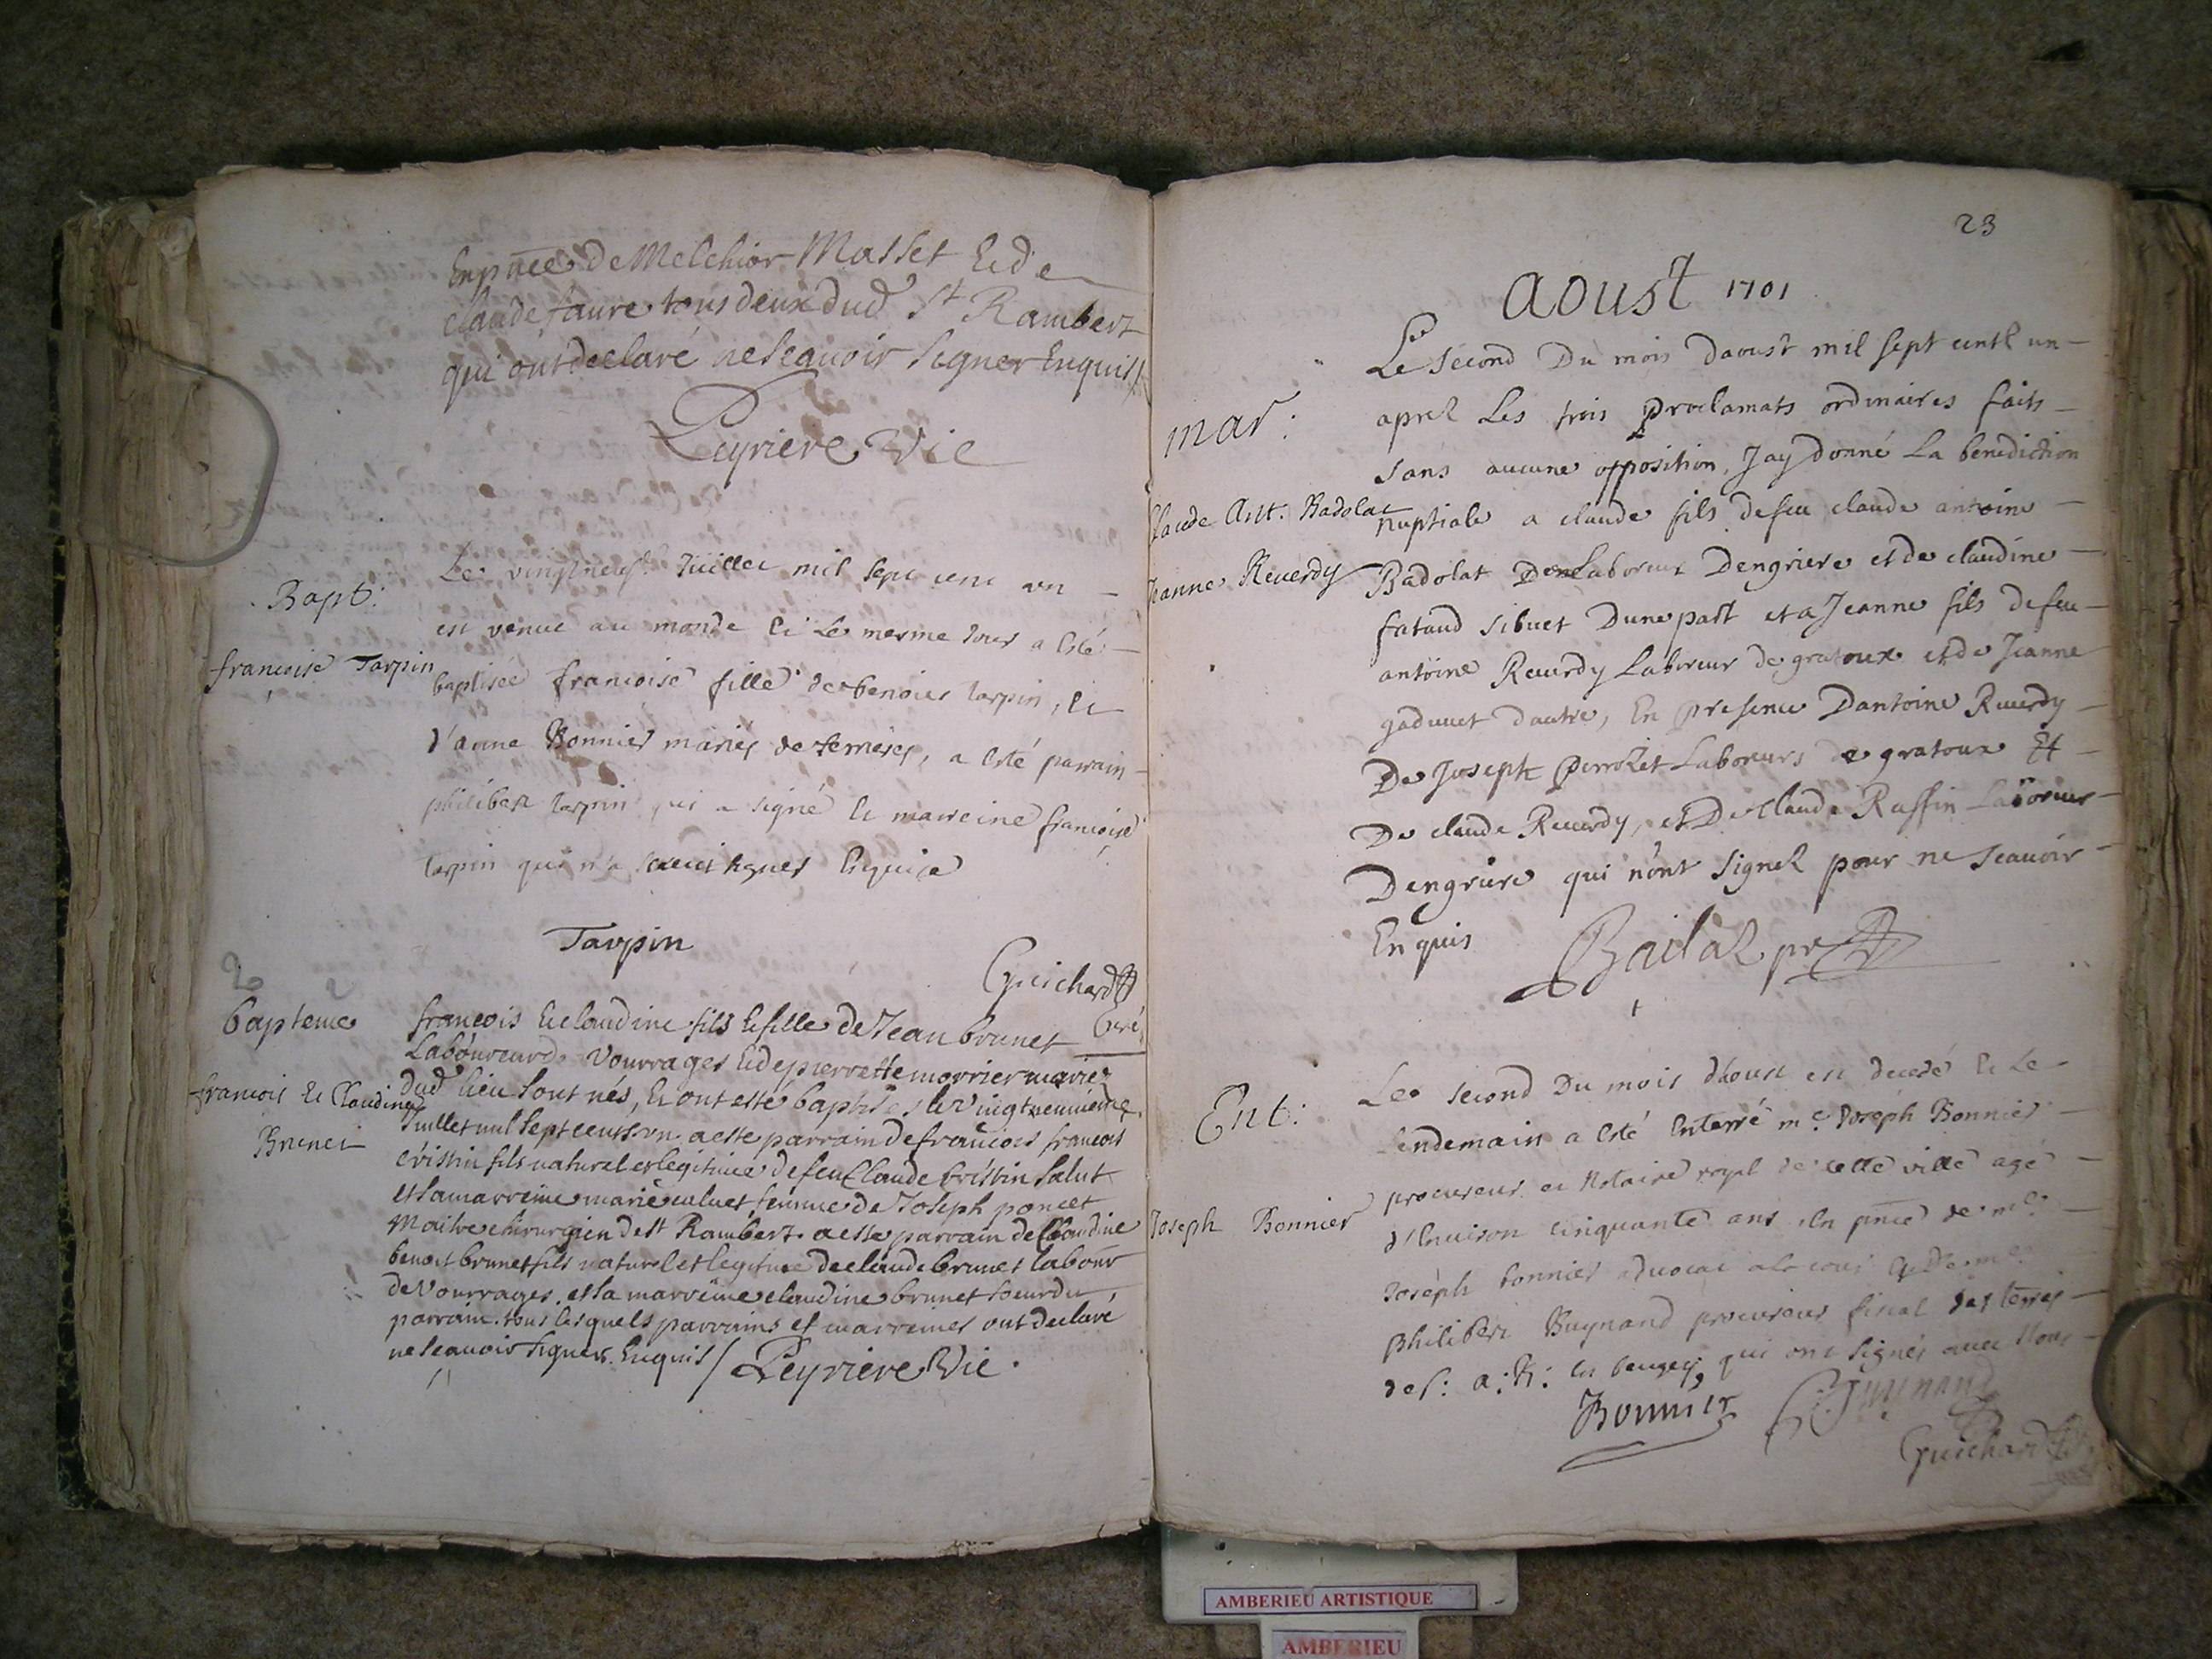 Enpnce de Melchior Masset Et de
claude faure tous deux dud St Rambert
qui ont declaré ne scauoir signer Enquis
Leyriere Vic
Bapt:
françoise Tarpin
Le vingtneuf Juillet mil sept cent un
est venue au monde Et Le mesme Jour a esté
baptisée françoise fille de benoit tarpin, Et
d'anne Bonnier mariés de , a esté parrain
philibert tarpin qui a signé Et marreine françoise
tarpin qui n'a sceu signer Enquise
Tarpin
Guichard
Curé
2 2
bapteme
francois Et Claudine
Brunet
francois Et claudine fils Et fille de Jean brunet
Laboureur de Vourrages Et de pierrette morrier mariez
dud lieu sont nés, Et ont esté baptises le Vingtneuuieme
Juillet mil sept cents un a este parrain de francois francois
cristin fils naturel et legitime de feu Claude cristin salut
et la marreine marie caluet femme de Joseph poncet
Maitre chirurgien de st Rambert. a este parrain de Claudine
benoit brunet fils naturel et legitime de claude brunet labour
de Vourrages. et la marreine claudine brunet soeur du
parrain. tous lesquels parrains et marreines ont declare
ne scauoir signer. Enquis / Leyriere Vic.
23
aoust 1701
mar:
Claude Ant. Badolat
Jeanne Reuerdy
Le second Du mois daoust mil sept cent un
aprez Les trois proclamats ordinaires faits
sans aucune opposition, Jay donné La benediction
nuptiale a claude fils defeu claude antoine
Badolat Laboreur Dengriere et de claudine
fataud sibuet Dune part et a Jeanne fils defeu
antoine Reuerdy Laboreur de gratoux et de Jeanne
gaduuet dautre, En presence Dantoine Reuerdy
De Joseph perrozet Laboreurs de gratoux Et
De claude Reuerdy, et De claude Ruffin Laboreur
Dengriere qui n'ont signez pour ne scauoir
Enquis
Bailat pr
Ent:
Joseph Bonnier
Le second Du mois dAoust est decedé Et Le
Lendemain a esté Enterré me Joseph Bonnier
procureur et Notaire royal de cette ville agé
d'Enuiron cinquante ans En pnce de me
Joseph bonnier aduocat a la cour Et de me
philibert Buynand procureur fiscal des terres
de s: a: R: En beugey, qui ont signés auec Nous
Bonnier
Buynand
Guichard
AMBERIEU ARTISTIQUE
AMBERIEU